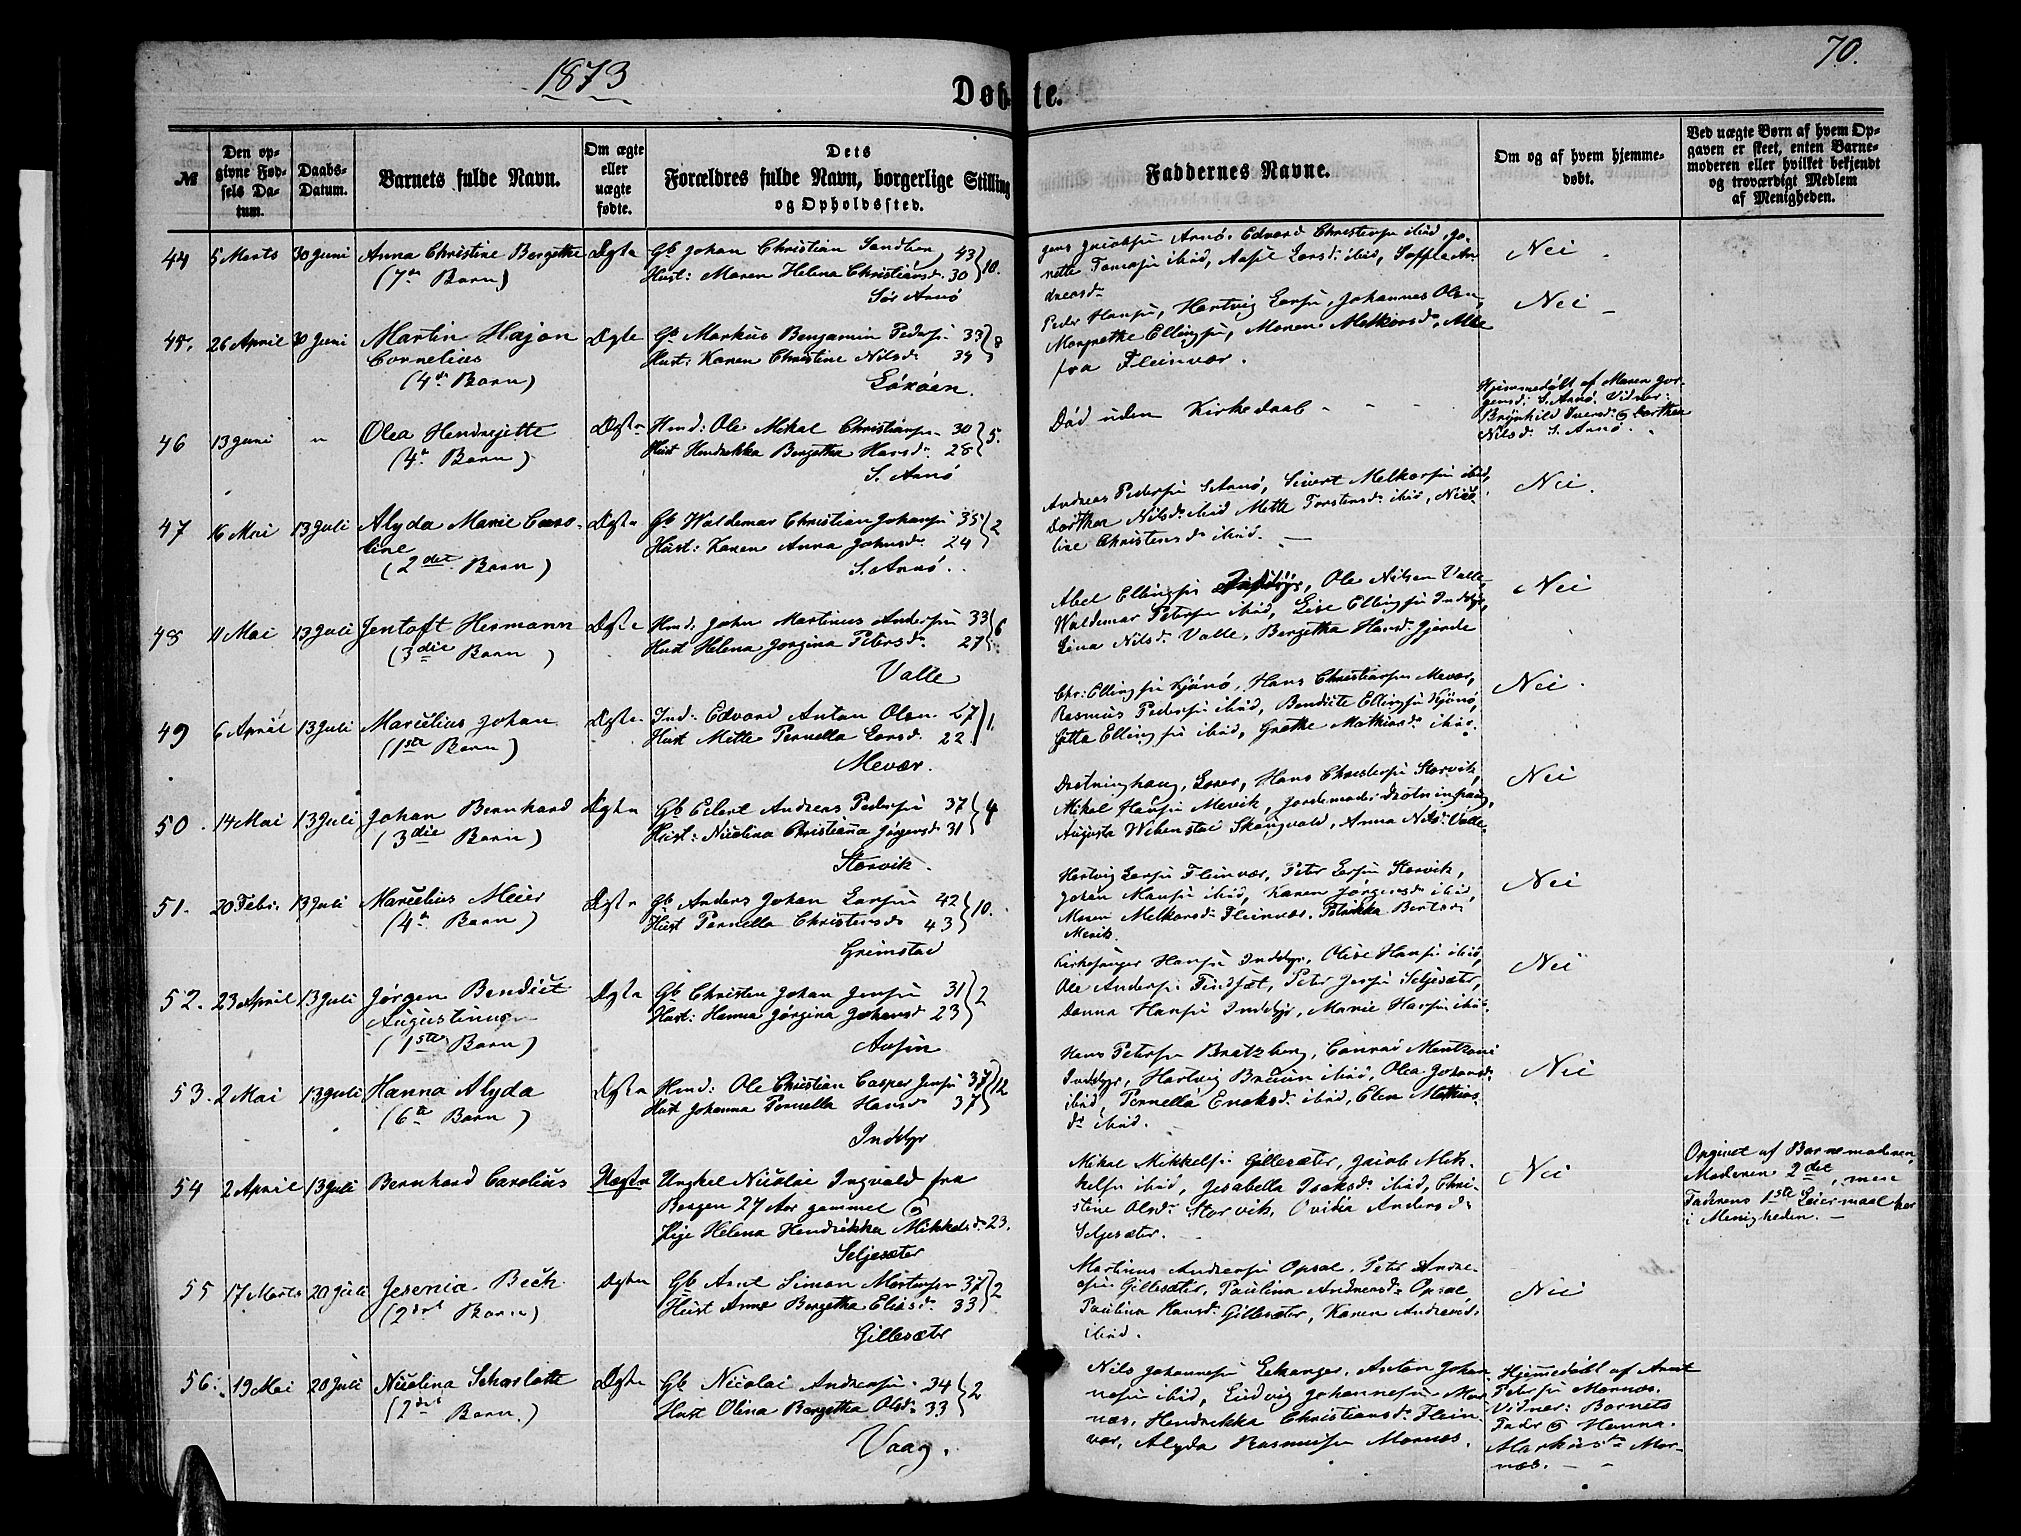 1873
70.
Døbte.
№
Den opgivne Fødsels Datum.
Daabs-Datum.
Barnets fulde Navn.
Om ægte eller uægte fødte.
Dets Forældres fulde Navn, borgerlige Stilling og Opholdssted.
Faddernes Navne.
Om og af hvem hjemmedøbt.
Ved uægte Børn af hvem Opgaven er skeet, enten Barnemoderen eller hvilket bekjendt og troværdigt Medlem af Menigheden.
44 5 Marts 30 Juni Anna Christine Bergethe Ægte Gb Johan Christian Sandber 43 } 10.
(7de Barn) Hust: Maren Helena Christiansd. 30
Sør Arnø
Jens Jacobsen Arnø, Edvard Christensen ibid, Jo-
nette Tomasen ibid, Larsd. ibid, An-
dreasd.
Nei
45. 26 April 30 Juni Martin Hajon Ægte Gb Markus Benjamin Peders. 33 } 8
Cornelius Hust: Karen Christine Nilsd. 34
(4de Barn)
Peder Hansen, Hartvig Larsen, Johannes Olsen,
Margrethe Ellingsen, Maren Melkiorsd. Alle
fra Fleinvær.
Nei
46 13 Juni " Olea Hendrejette Ægte Hmd: Ole Mikal Christians. 30 } 5.
(4de Barn) Hust Hendrikka Bergetha Hansd. 28
S. Arnø
Død uden Kirkedaab
Hjemmedøbt af Maren Jør-
gensd. S. Arnø. Vidner:
Brynhild Iversd. & Dorthea
Nilsd. S. Arnø.
47 16 Mai 13 Juli Alyda Marie Caro- Ægte Gb Waldemar Christian Johansen 35 } 2
line Hust: Karen Anna Johnsd. 24
(2det Barn) S. Arnø.
Andreas Pedersen S Arnø, Sivert Melkorsen ibid,
Dorthea Nilsd. ibid Mette Torstensd. ibid, Nico-
line Christensd. ibid.
Nei.
48 11 Mai 13 Juli Jentoft Hermann Ægte Hmd. John Martinus Andersen 33 } 6
(3die Barn) Hust Helena Jorgina Petersd. 27
Valle
Abel Ellingsen Inddyr, Ole Nilsen Valle,
Waldemar Petersen ibid, Lise Ellingsen Inddyr,
Lina Nilsd. Valle, Bergetha Hansd. Gjerde
Nei
49 6 April 13 Juli Marcelius Johan Ægte Ind: Edvard Anton Olsn. 27 } 1.
(1ste Barn) Hust Mette Pernella Larsd. 22
Mevær.
Chr: Ellingsen Kjønø, Hans Christiansen Mevær,
Rasmus Pedersen ibid, Bendicte Ellingsen Kjønø,
Jetta Ellingsen ibid, Grethe Mathiasd. ibid.
Nei.
50. 14 Mai 13 Juli Johan Bernhard Ægte Gb Eilert Andreas Pedersen 37 } 4
(3die Barn) Hust: Nicolina Christiana Jørgensd. 31
Storvik.
Drotninghaug, Hans Christensen Storvik,
Mikal Hansen Mevik, Jordemoder Drotninghaug,
Augusta Skaugvold, Anna Nilsd. Valle
Nei
51. 20 Febr. 13 Juli Marcelius Meier Ægte Gb Anders Johan Larsen 42 } 10.
(4de Barn) Hust Pernella Christensd. 43
Grimstad
Hartvig Larsen Fleinvær, Peter Larsen Storvik,
Johan Hansen ibid, Karen Jørgensd. ibid,
Maren Melkorsd. Fleinvær, Petrikka Bertsd.
Mevik.
Nei
52. 23 April 13 Juli Jørgen Bendict Ægte Gb Christen Johan Jensen 31 } 2
Augustinus Hust: Hanna Jørgina Johansd. 23
(1ste Barn)
Kirkesanger Hansen Inddyr, Olise Hansen ibid,
Ole Andersen Finsæt, Peter Jensen Seljesæter,
Danna Hansen Inddyr, Marie Hansen ibid.
Nei
53. 2 Mai 13 Juli Hanna Alyda Ægte Hmd: Ole Christian Casper Jensen 37 } 12
(6te Barn) Hust Johanna Pernella Hansd. 37
Inddyr
Hans Petersen Bratzberg, Conrad Mentzoni
Inddyr, Hartvig Bruun ibid, Olea Johansd.
ibid, Pernella Enoksd. ibid, Elen Mathias-
d. ibid.
Nei
54 2 April 13 Juli Bernhard Carolius Uægte Ungkal Nicolai Ingvald fra
Bergen 27 Aar gammel &
Pige Helena Hendrikka Mikkelsd. 23.
Seljesæter
Mikal Mikkelsen Gillesæter, Jacob Mik-
kelsen ibid, Jesabella Isaksd. ibid, Chri-
stine Olsd. Storvik, Ovidia Andersd.
Seljesæter.
Nei
Opgivet af Barnemoderen,
Moderens 2det, men
Faderens 1ste Leiermaal her
i Menigheden.
55 17 Marts 20 Juli Jesenia Beck Ægte Gb Arnt Simon Mortensen 37 } 2
(2det Barn) Hust Anne Bergetha Eliasd. 33
Gillesæter
Martinus Andersen Opsal, Peter Andre-
sen Gillesæter, Paulina Andreasd. Opsal,
Paulina Hansd. Gillesæter, Karen Andreasd.
ibid.
Nei
56. 19 Mai 20 Juli Nicolina Scharlotte Ægte Gb Nicolai Andersen 34 } 2
(2det Barn.) Hust Olina Bergetha Olsd. 33
Vaag.
Nils Johannesen Eshanger, Anton Johan-
nesen ibid, Ludvig Johannesen Mor-
næs, Hendrikka Christiansd. Flein-
vær, Alyda Rasmusen Mornæs.
Hjemmedøbt af Arnt
Petersen Mornæs.
Vidner: Barnets
Fader & Hanna
Markusd. Mor-
næs.